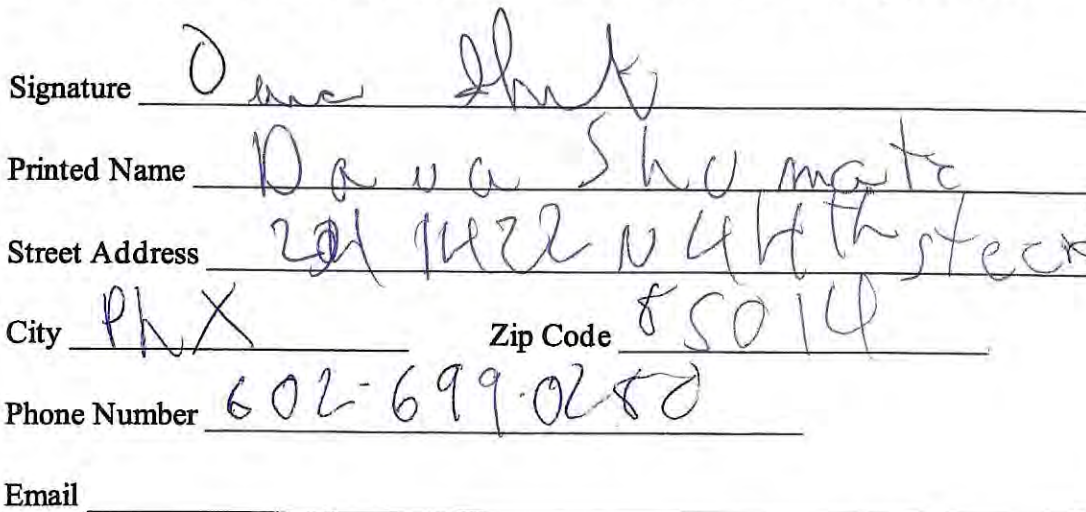 Signature
Printed Name Dava Shumate
Street Address 1422 N 44th steck
City PhX Zip Code 85014
Phone Number 602-699-0280
Email